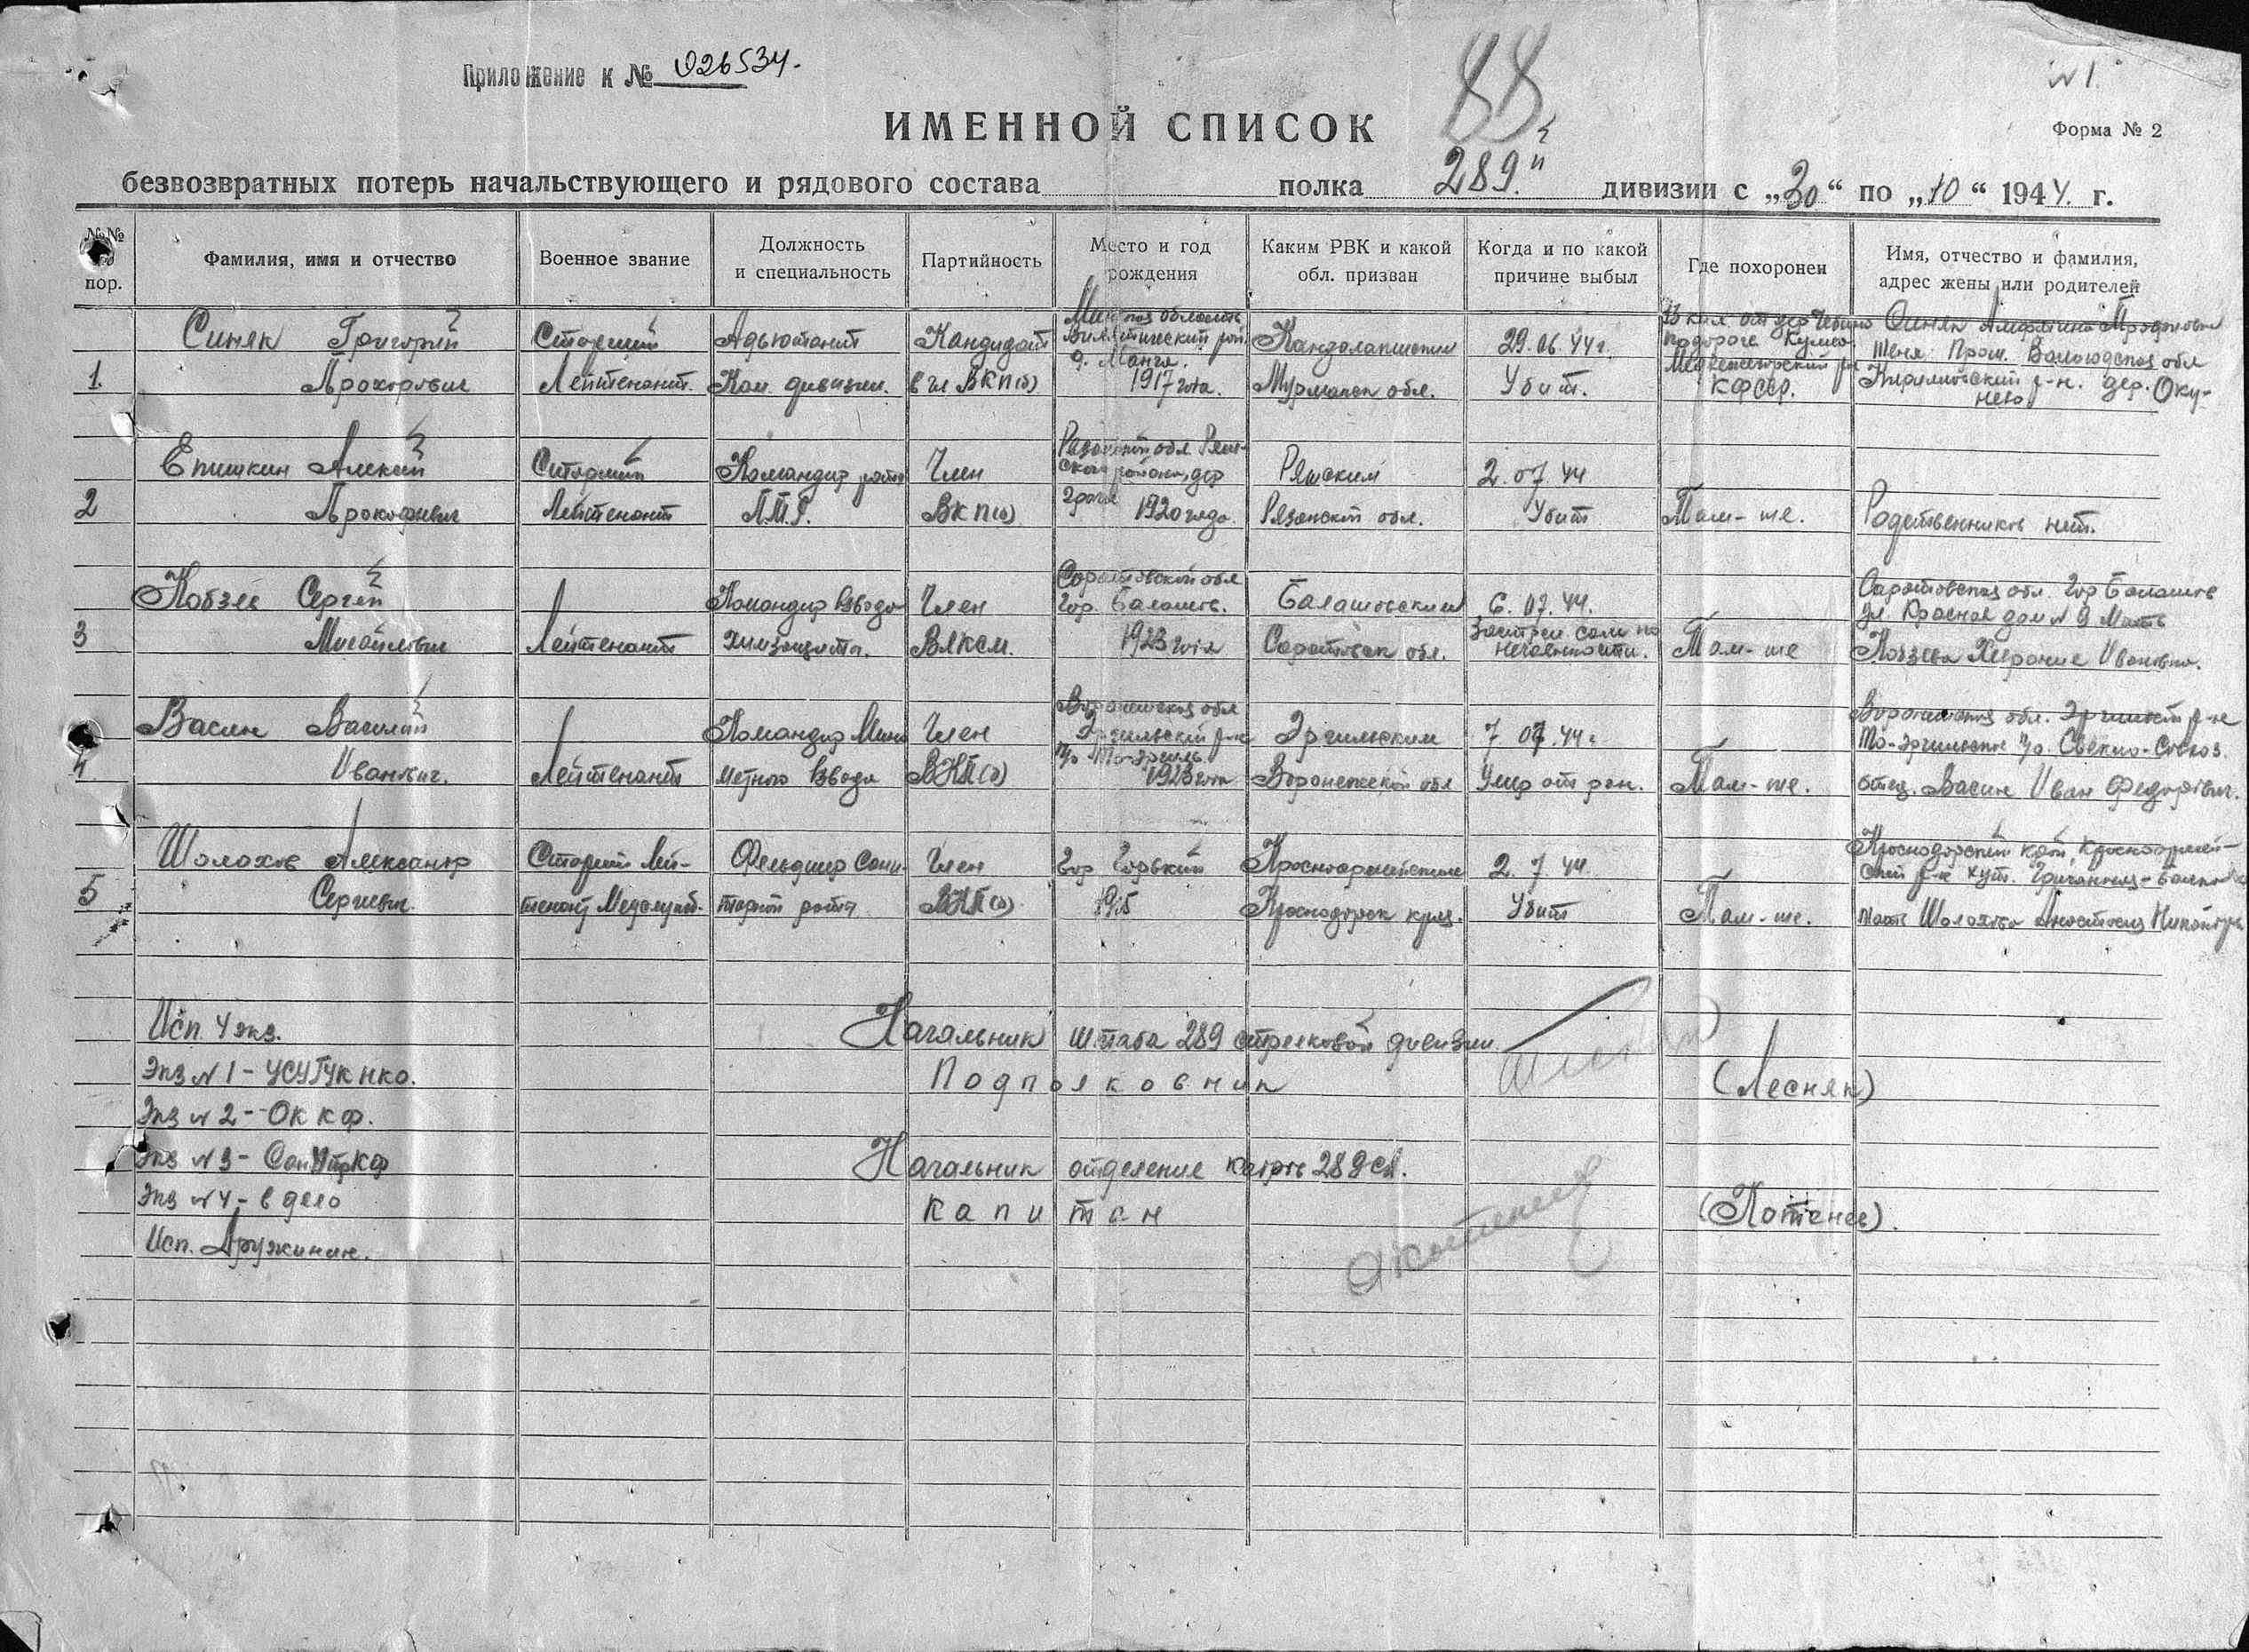 Приложение к № 026534.
88
№ 1.
ИМЕННОЙ СПИСОК
Форма № 2
безвозвратных потерь начальствующего и рядового состава полка 289 дивизии с „30“ по „10“ 1944 г.
№№ пор.
Фамилия, имя и отчество
Военное звание
Должность и специальность
Партийность
Место и год рождения
Каким РВК и какой обл. призван
Когда и по какой причине выбыл
Где похоронен
Имя, отчество и фамилия, адрес жены или родителей
1.
Синяк Григорий
Прохорович
Старший
Лейтенант.
Адъютант
Ком. дивизии.
Кандидат
в чл ВКП(б)
1917 года.
Кандалакшским
Мурманск обл.
29.06.44 г.
Убит.
КФССР.
Жена: Прож. Вологодская обл
Кирилловский р-н. дер. Оку-
нево
2
Епишкин Алексей
Прокофьевич
Старший
Лейтенант
Командир роты
Член
ВКП(б)
1920 года.
Ряжским
Рязанской обл.
2.07.44
Убит
Там-же.
Родственников нет.
3
Кобзев Сергей
Михайлович
Лейтенант
Командир взвода
химзащиты.
Член
ВЛКСМ.
Саратовской обл
гор. Балашов.
1923 года
Балашовским
Саратовск обл.
6.07.44.
Застрел. сам по
нечаенности.
Там-же
Саратовская обл. гор Балашов
ул. Красная дом № 9 Мать
Кобзева Ивановна.
4
Васин Василий
Иванович.
Лейтенант
Командир Мино
метного взвода
Член
ВКП(б)
Воронежская обл
Эртильский р-н
1923 года
Эртильским
Воронежской обл
7.07.44 г
Умер от ран.
Там-же.
Воронежская обл. Эртильский р-н
отец. Васин Иван Федорович.
5
Шолохов Александр
Сергеевич.
Старший Лей-
тенант Медслужб.
Фельдшер Сани-
тарной роты
Член
ВКП(б)
гор Горький
1915
Красноармейским
Краснодарск края.
2.7.44.
Убит
Там-же.
Краснодарский край, Красноармей-
ский р-н хут.
мать Шолохова Анастасия
Исп. 4 экз.
Экз № 1 - УСУГУК НКО.
Экз № 2 - ОК КФ.
Экз № 3 - СанУпрКФ
Экз № 4 - в дело
Исп. Дружинин.
Начальник штаба 289 стрелковой дивизии
Подполковник
(Лесняк)
Начальник отделение кадров 289 СД.
Капитан
(Потанев).